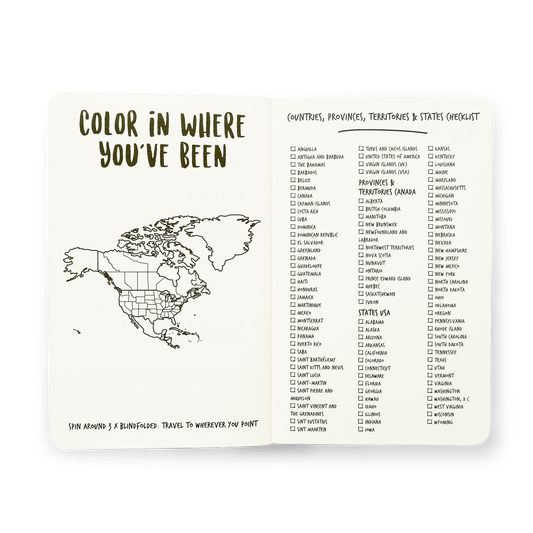 COLOR IN WHERE
YOU'VE BEEN
SPIN AROUND 3 X BLINDFOLDED. TRAVEL TO WHEREVER YOU POINT
COUNTRIES, PROVINCES, TERRITORIES & STATES CHECKLIST
ANGUILLA
ANTIGUA AND BARBUDA
THE BAHAMAS
BARBADOS
BELIZE
BERMUDA
CANADA
CAYMAN ISLANDS
COSTA RICA
CUBA
DOMINICA
DOMINICAN REPUBLIC
EL SALVADOR
GREENLAND
GRENADA
GUADELOUPE
GUATEMALA
HAITI
HONDURAS
JAMAICA
MARTINIQUE
MEXICO
MONTSERRAT
NICARAGUA
PANAMA
PUERTO RICO
SABA
SAINT BARTHÉLEMY
SAINT KITTS AND NEVIS
SAINT LUCIA
SAINT-MARTIN
SAINT PIERRE AND
MIQUELON
SAINT VINCENT AND
THE GRENADINES
SINT EUSTATIUS
SINT MAARTEN
TURKS AND CAICOS ISLANDS
UNITED STATES OF AMERICA
VIRGIN ISLANDS (UK)
VIRGIN ISLANDS (USA)
PROVINCES &
TERRITORIES CANADA
ALBERTA
BRITISH COLUMBIA
MANITOBA
NEW BRUNSWICK
NEWFOUNDLAND AND
LABRADOR
NORTHWEST TERRITORIES
NOVA SCOTIA
NUNAVUT
ONTARIO
PRINCE EDWARD ISLAND
QUEBEC
SASKATCHEWAN
YUKON
STATES USA
ALABAMA
ALASKA
ARIZONA
ARKANSAS
CALIFORNIA
COLORADO
CONNECTICUT
DELAWARE
FLORIDA
GEORGIA
HAWAII
IDAHO
ILLINOIS
INDIANA
IOWA
KANSAS
KENTUCKY
LOUISIANA
MAINE
MARYLAND
MASSACHUSETTS
MICHIGAN
MINNESOTA
MISSISSIPPI
MISSOURI
MONTANA
NEBRASKA
NEVADA
NEW HAMPSHIRE
NEW JERSEY
NEW MEXICO
NEW YORK
NORTH CAROLINA
NORTH DAKOTA
OHIO
OKLAHOMA
OREGON
PENNSYLVANIA
RHODE ISLAND
SOUTH CAROLINA
SOUTH DAKOTA
TENNESSEE
TEXAS
UTAH
VERMONT
VIRGINIA
WASHINGTON
WASHINGTON, D.C.
WEST VIRGINIA
WISCONSIN
WYOMING